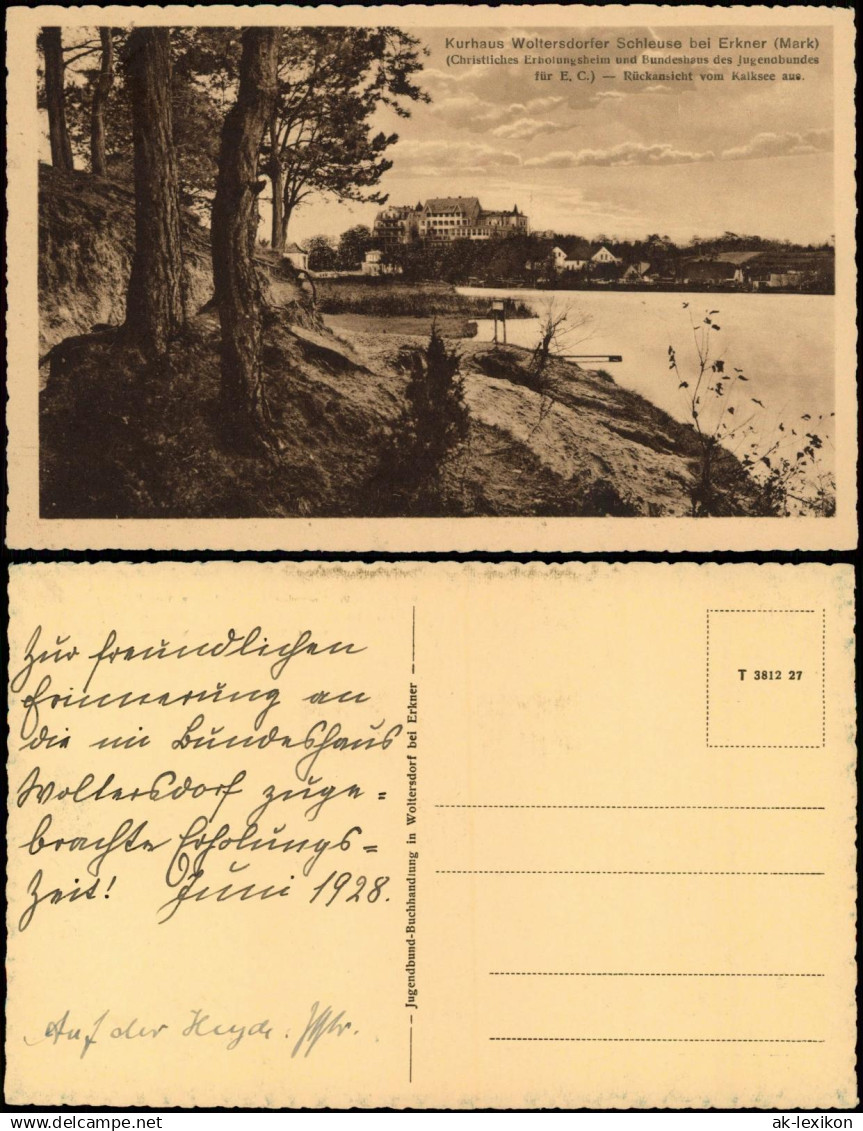 Kurhaus Woltersdorfer Schleuse bei Erkner (Mark)
(Christliches Erholungsheim und Bundeshaus des Jugendbundes
für E. C.) — Rückansicht vom Kalksee aus.
Zur freundlichen
Erinnerung an
die im Bundeshaus
Woltersdorf zuge=
brachte Erholungs=
Zeit! Juni 1928.
Auf der Heyde.
— Jugendbund-Buchhandlung in Woltersdorf bei Erkner —
T 3812 27
www.ansichtskarten-lexikon.de
ak-lexikon